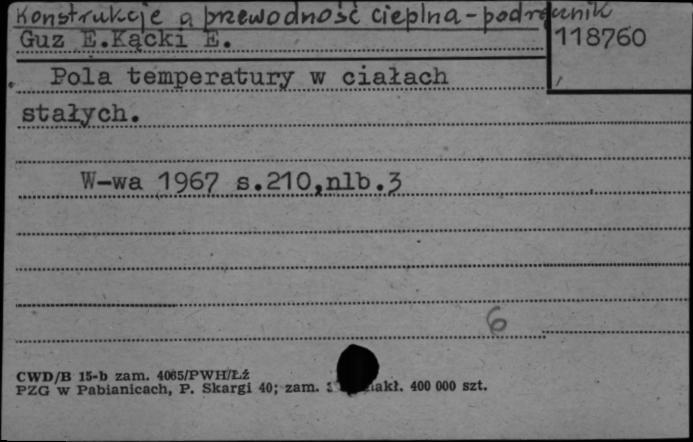 Konstrukcje a przewodność cieplna - podręcznik
Guz E.Kącki E.
118760
Pola temperatury w ciałach
stałych.
W-wa 1967 s.210,nlb.3
6
CWD/B 15-b zam. 4065/PWH/Łź
PZG w Pabianicach, P. Skargi 40; zam. nakł. 400 000 szt.